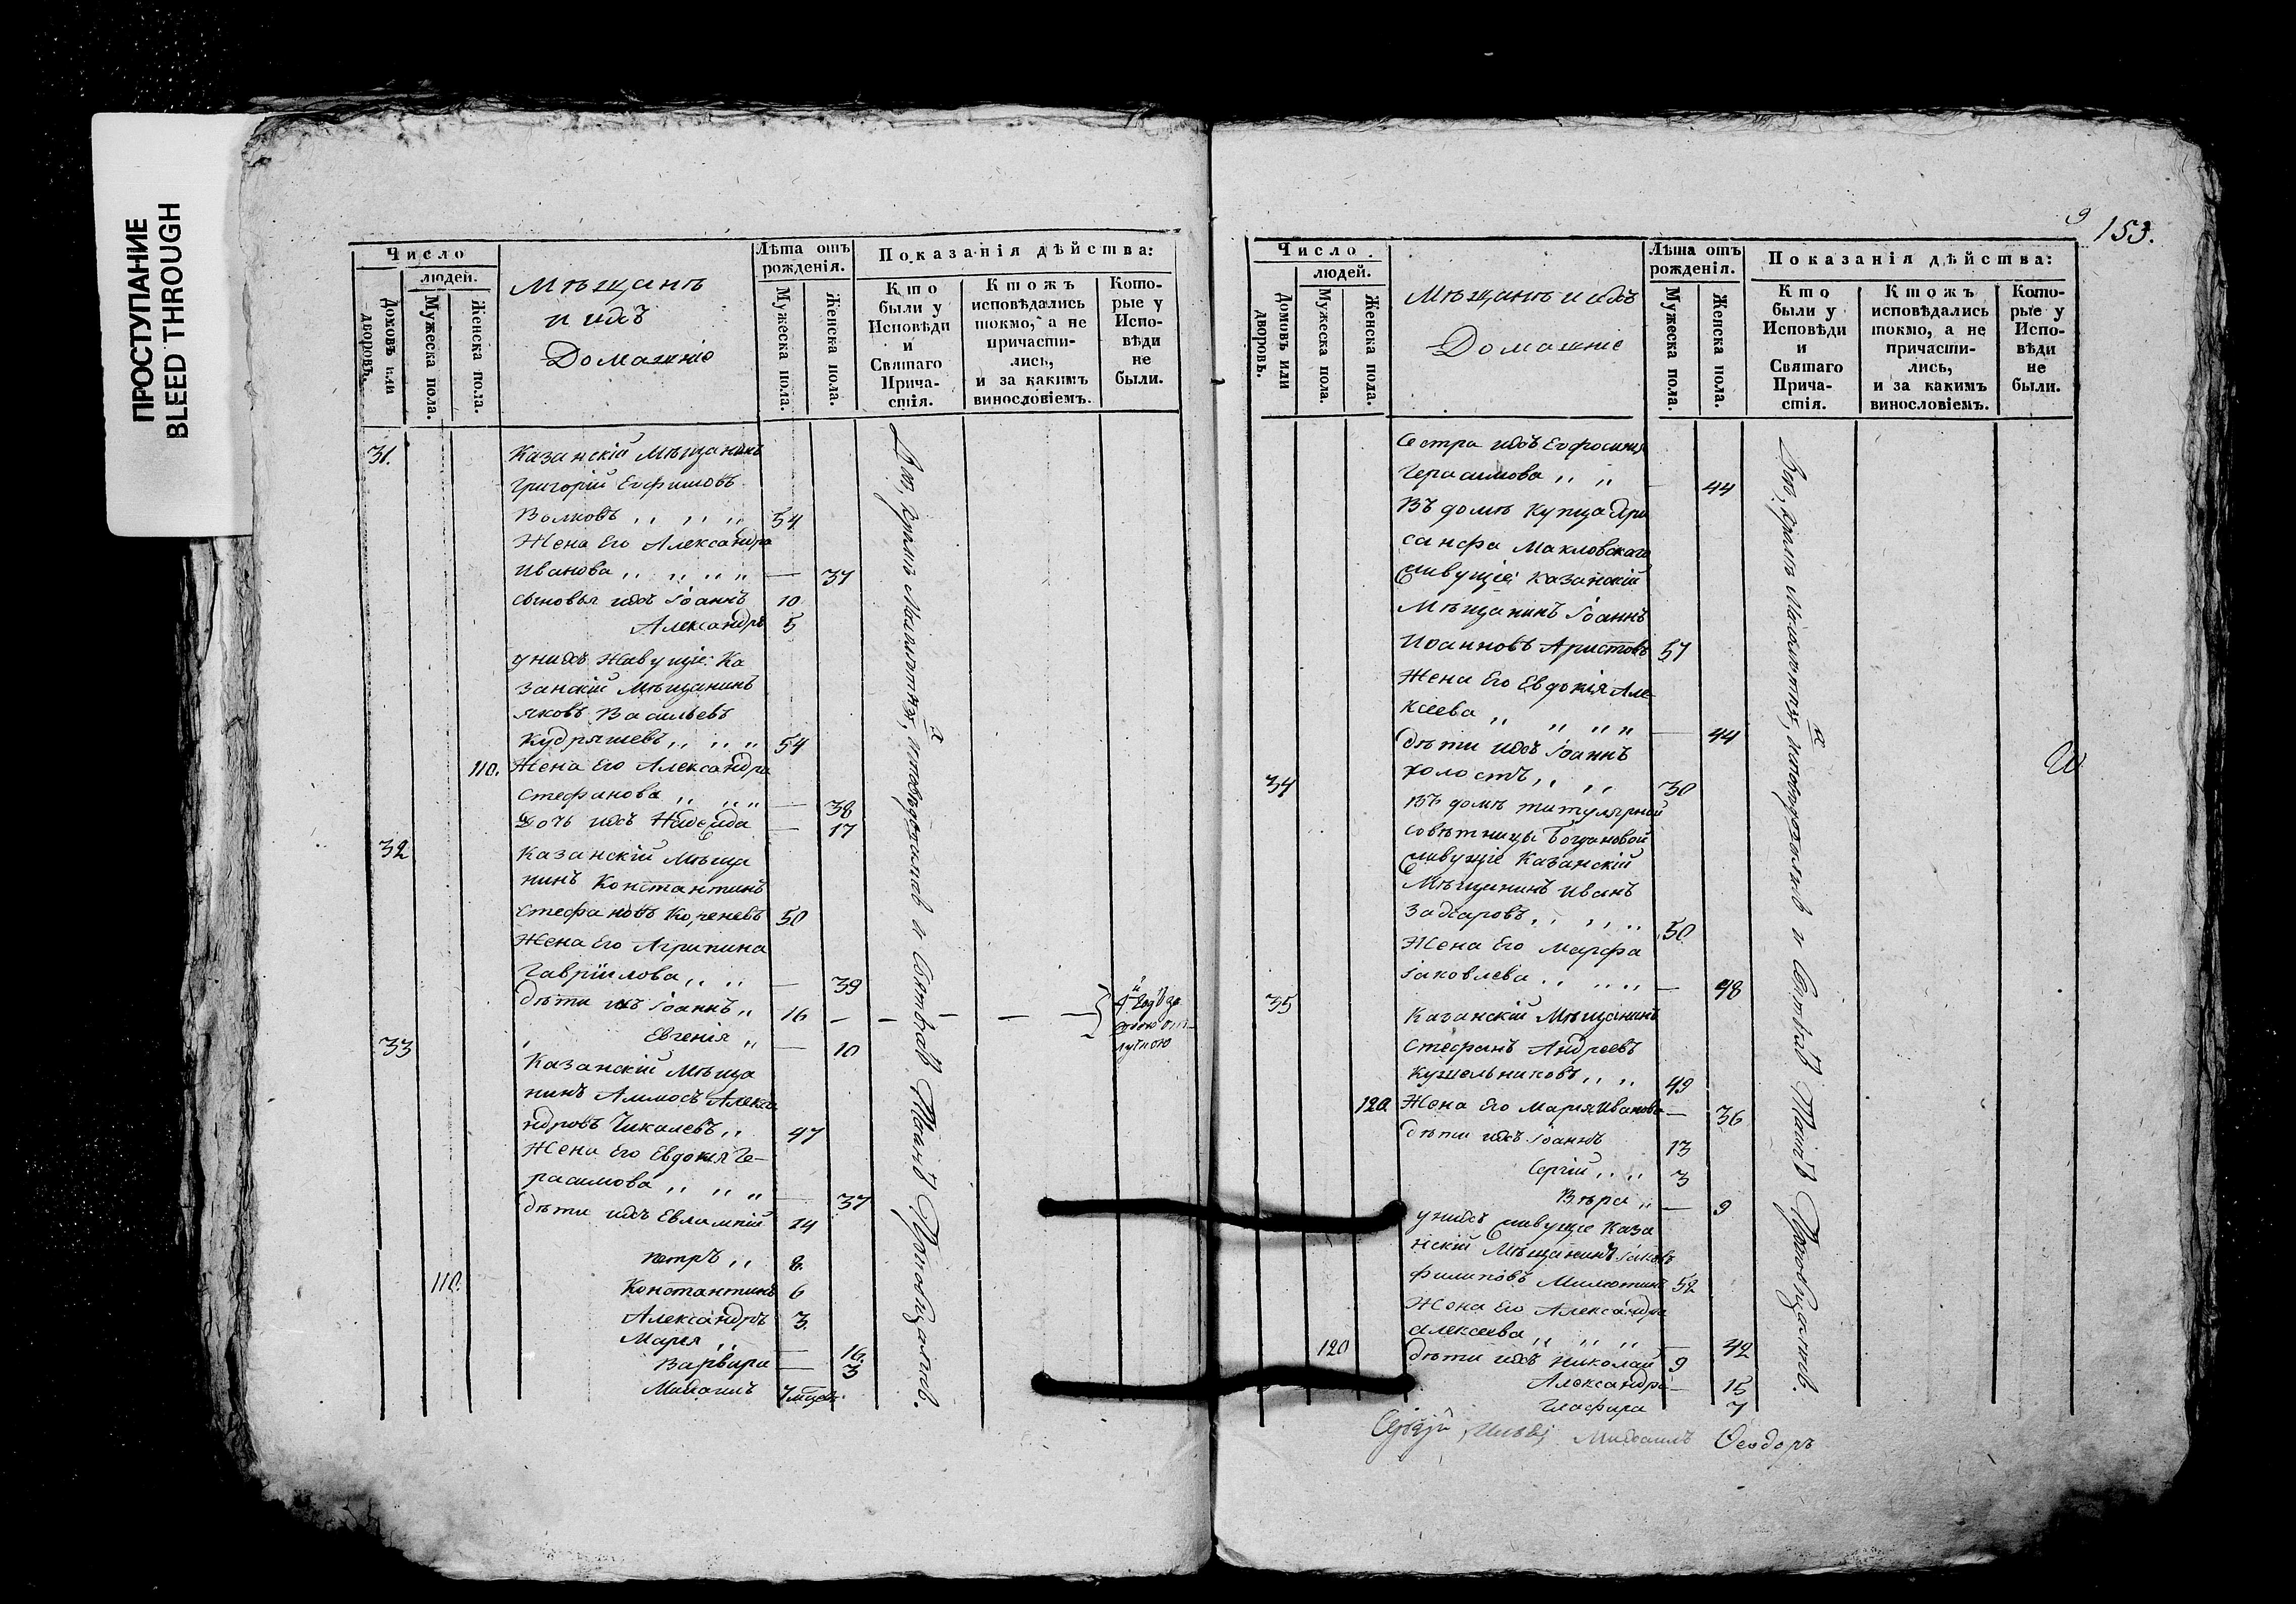 ПРОСТУПАНИЕ
BLEED THROUGH
Число
людей.
Домовъ или дворовъ.
Мужеска пола.
Женска пола.
Мѣщанѣ
и ихъ
Домашніе
Лѣта отъ рожденія.
Мужеска пола.
Женска пола.
Показанія дѣйства:
Кто были у Исповѣди и Святаго Причастія.
Ктожъ исповѣдались токмо, а не причастились, и за какимъ винословіемъ.
Которые у Исповѣди не были.
31. Казанскій Мѣщанинъ
Григорій Евфимовъ
Волковъ „ „ „ 54
Жена Его Александра
Иванова „ „ „ „ — 37
сыновья ихъ Іоаннъ 10
Александръ 5
у нихъ Живущіе: Ка
занскій Мѣщанинъ
Яковъ Васильевъ
Кудряшевъ „ „ „ 54
110. Жена Его Александра
Стефанова „ „ „ — 38
Дочь ихъ Надежда — 17
32 Казанскій Мѣща
нинъ Константинъ
Стефановъ Кореневъ 50
Жена Его Агрипина
Гавріилова „ „ — 39
дѣти ихъ Іоаннъ „ 16 — — — — —
Евгенія „ — 10
33 Казанскій Мѣща
нинъ Аммосъ Алекса
ндровъ Чикалевъ „ 47
Жена Его Евдокія Ге-
расимова „ „ „ — 37
дѣти ихъ Евлампій 14
Петръ „ 8.
110. Константинъ 6
Александръ 3.
Марія „ — 16.
Варвара — 3
Михаилъ 7 мѣсяц.
и Святыхъ Таинъ
9 153.
Число
людей.
Домовъ или дворовъ.
Мужеска пола.
Женска пола.
Мѣщанѣ и ихъ
Домашніе
Лѣта отъ рожденія.
Мужеска пола.
Женска пола.
Показанія дѣйства:
Кто были у Исповѣди и Святаго Причастія.
Ктожъ исповѣдались токмо, а не причастились, и за какимъ винословіемъ.
Которые у Исповѣди не были.
Сестра ихъ Евфросинія
Герасимова „ „ — 44
Въ домѣ Купца Хри
санфа Макловскаго
живущіе: Казанскій
Мѣщанинъ Іоаннъ
Иоанновъ Аристовъ 57
Жена Его Евдокія Але-
ксеева „ „ „ „ — 44
дѣти ихъ Іоаннъ
34 холостъ „ „ 30
Въ домѣ титулярной
совѣтницы Богдановой
живущіе Казанскій
Мѣщанинъ Иванъ
Захаровъ „ „ „ 50
Жена Его Марфа
Іаковлева „ „ „ — 48
35 Казанскій Мѣщанинъ
Стефанъ Андреевъ
Кушельниковъ „ „ 49
120. Жена Его Марія Иванова — 36
дѣти ихъ Іоаннъ 13
Сергій „ „ 3
Вѣра „ — 9
у нихъ живущіе Каза
нскій Мѣщанинъ Іаковъ
Филиповъ Милютинъ 52
Жена Его Александра
Алексеева „ „ „ — 42
120 дѣти ихъ Николай 9
Александра — 15
Глафира 7
и Святыхъ Таинъ
Михаилъ Ѳеодоръ